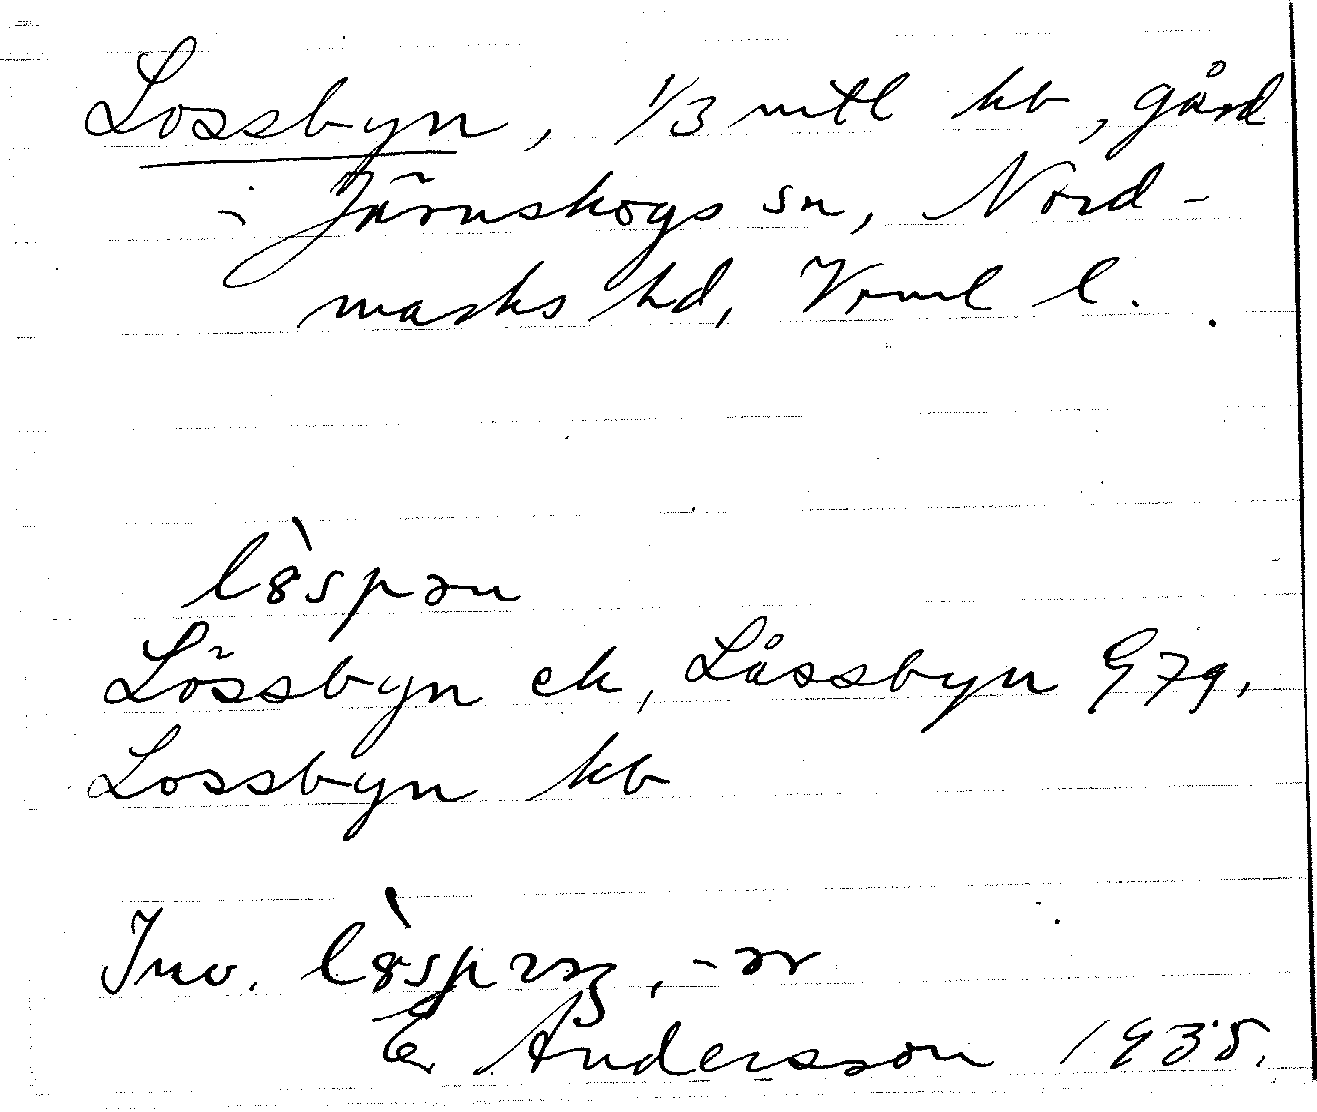 Lossbyn, 1/3 mtl kb, gård
i Järnskogs sn, Nord-
marks hd, Vrml l.
lò̀spən
Lössbyn ek, Låssbyn G79,
Lossbyn kb
Inv. , -ər
E. Andersson 1935.